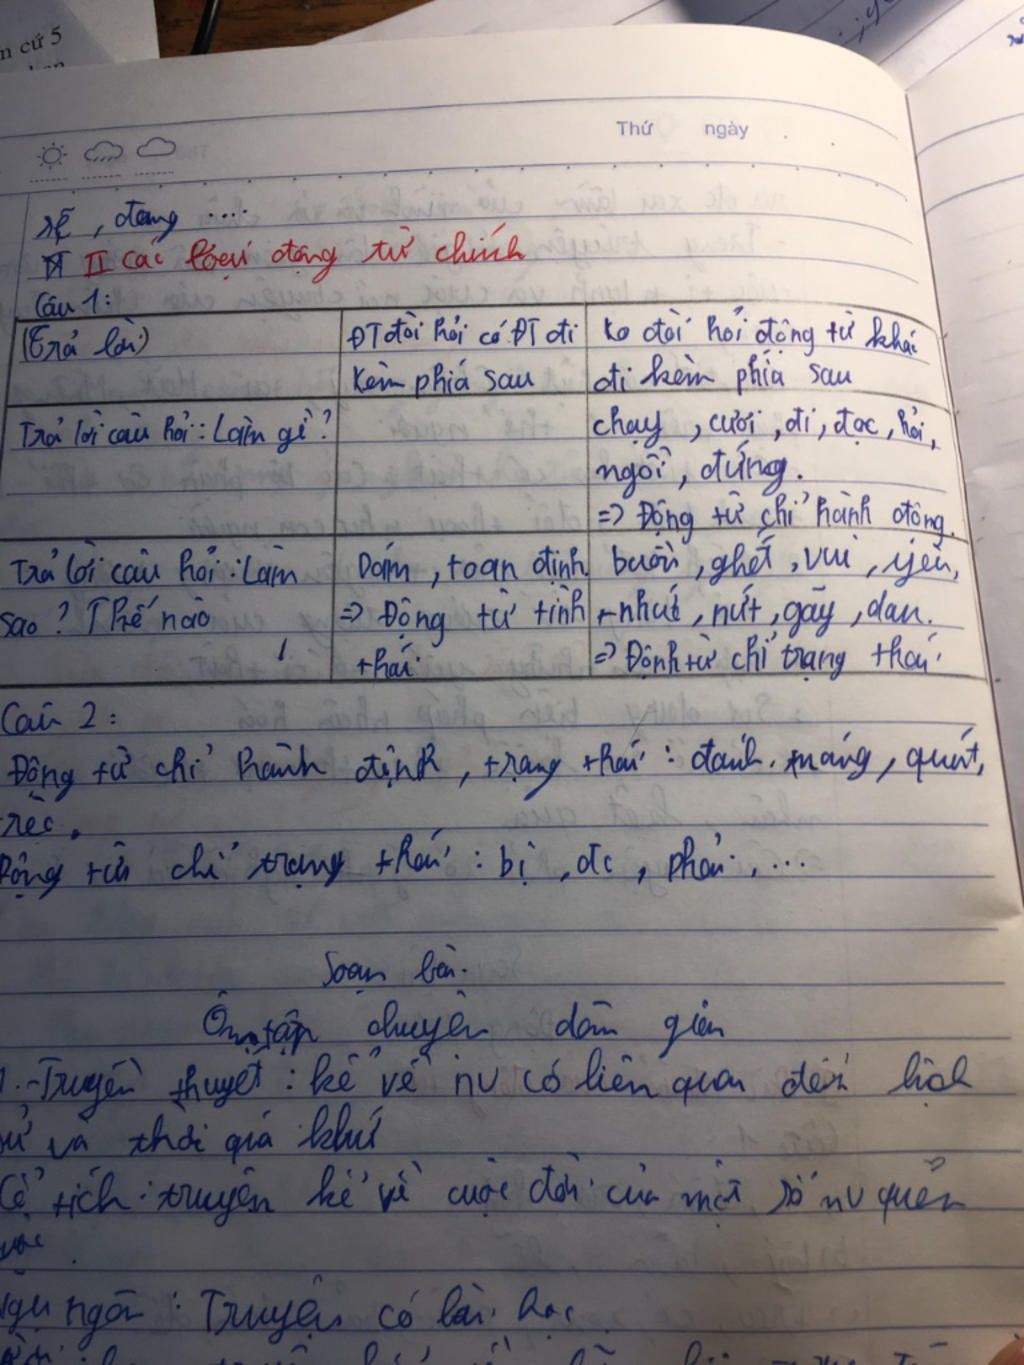 n cứ 5
Thứ ngày
sẽ, đang ....
II Các loại động từ chính
Câu 1:
(Trả lời) ĐT đòi hỏi có ĐT đi Ko đòi hỏi động từ khác
kèm phía sau đi kèm phía sau
Trả lời câu hỏi: Làm gì? chạy, cười, đi, đọc, hỏi,
ngồi, đứng.
=> Động từ chỉ hành động.
Trả lời câu hỏi: Làm Dám, toan định buồn, ghét, vui, yêu,
sao? Thế nào => Động từ tình nhứt, nứt, gãy, đau.
thái. => Độnh từ chỉ trạng thái
Câu 2:
Động từ chỉ hành định, trạng thái: đánh, máng, quét,
Động từ chỉ trạng thái: bị, đc, phải, ...
Soạn bài.
Ôn tập chuyện dân gian
1. Truyền thuyết: kể về nv có liên quan đến lịch
sử và thời quá khứ
Cổ tích: truyện kể về cuộc đời của một số nv quen
Ngụ ngôn: Truyện có bài học